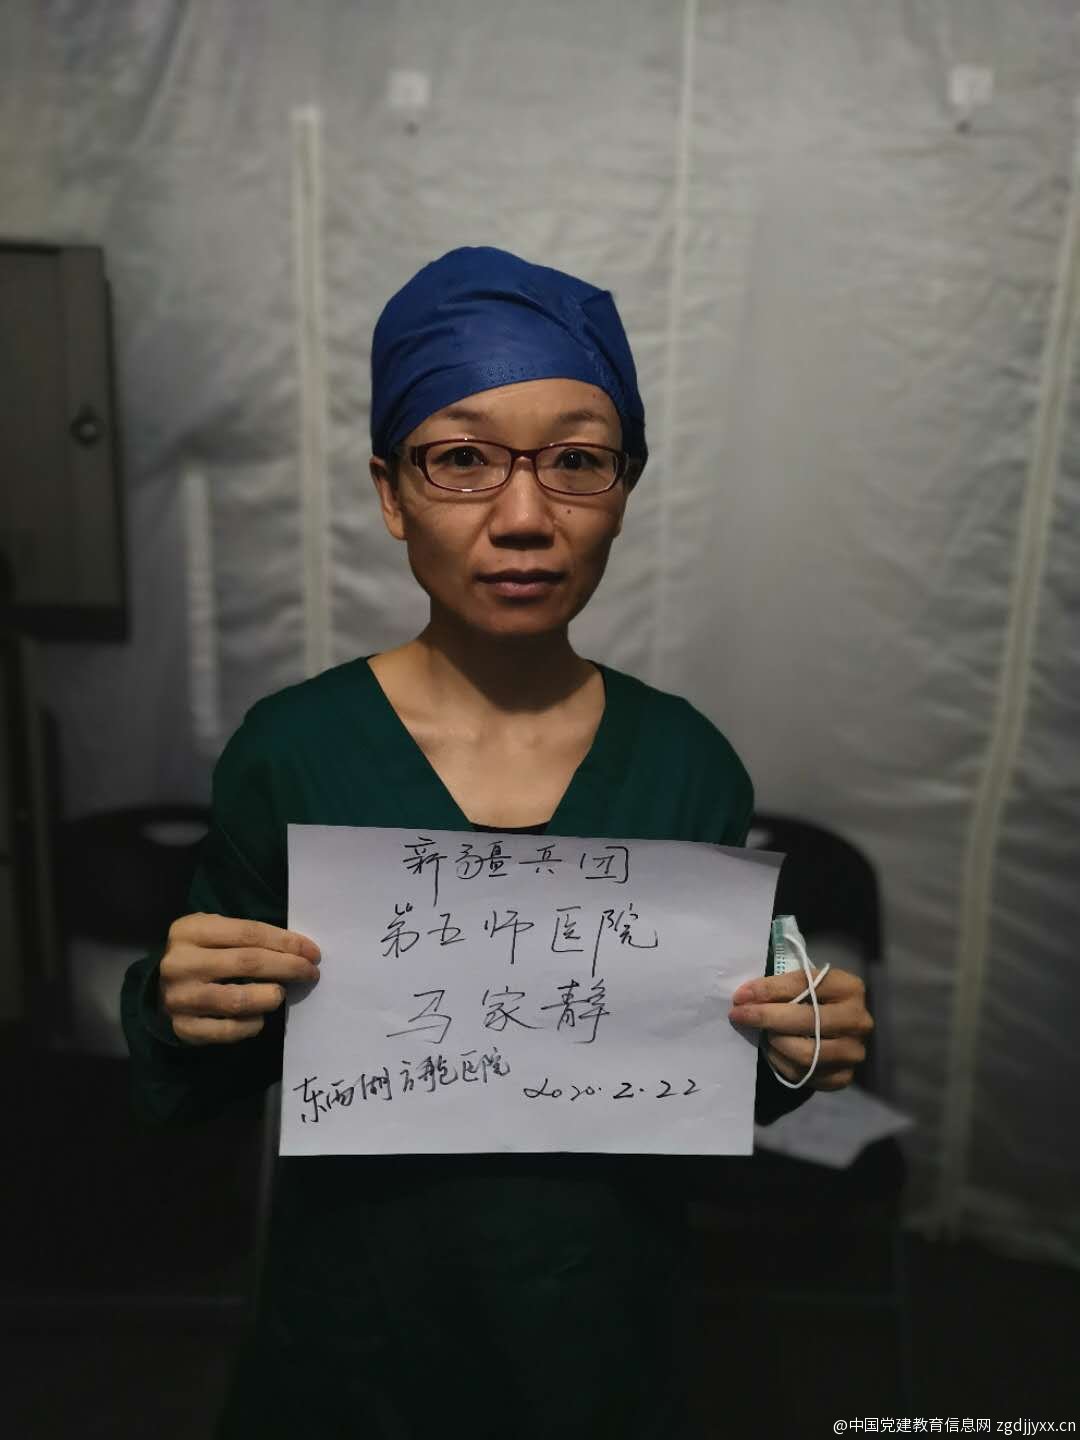 新疆兵团
第五师医院
马家静
东西湖方舱医院
2020.2.22
@中国党建教育信息网 zgdjjyxx.cn